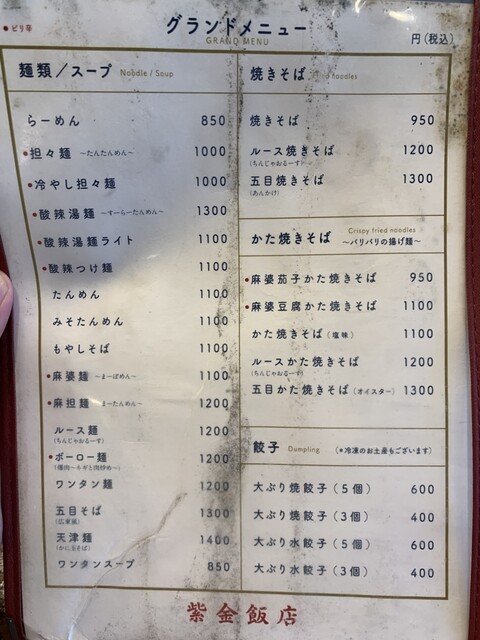 ●ピリ辛
グランドメニュー
GRAND MENU
円(税込)
麺類／スープ Noodle / Soup
らーめん 850
●担々麺 〜たんたんめん〜 1000
●冷やし担々麺 1000
●酸辣湯麺 〜すーらーたんめん〜 1300
●酸辣湯麺ライト 1100
●酸辣つけ麺 1100
たんめん 1100
みそたんめん 1100
もやしそば 1100
●麻婆麺 〜まーぼめん〜 1100
●麻担麺 〜まーたんめん〜 1200
ルース麺 1200
(ちんじゃおるーす)
●ボーロー麺 1200
(爆肉〜ネギと肉炒め〜)
ワンタン麺 1200
五目そば 1300
(広東風)
天津麺 1400
(かに玉そば)
ワンタンスープ 850
焼きそば Fried noodles
焼きそば 950
ルース焼きそば 1200
(ちんじゃおるーす)
五目焼きそば 1300
(あんかけ)
かた焼きそば Crispy fried noodles
〜パリパリの揚げ麺〜
●麻婆茄子かた焼きそば 950
●麻婆豆腐かた焼きそば 1100
かた焼きそば(塩味) 1100
ルースかた焼きそば 1200
(ちんじゃおるーす)
五目かた焼きそば(オイスター) 1300
餃子 Dumpling (＊冷凍のお土産もございます)
大ぶり焼餃子(5個) 600
大ぶり焼餃子(3個) 400
大ぶり水餃子(5個) 600
大ぶり水餃子(3個) 400
紫金飯店